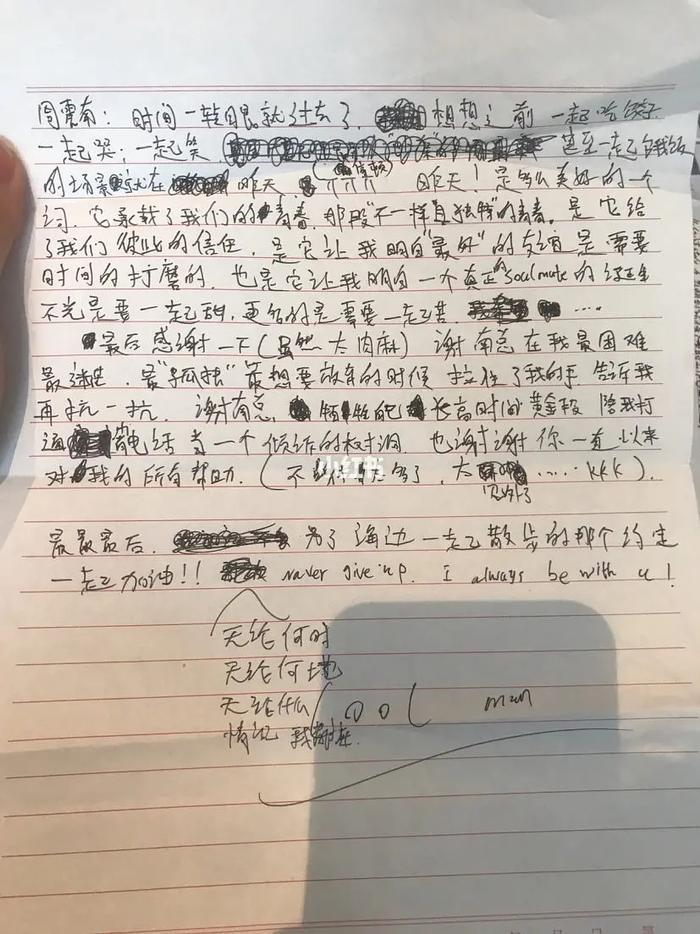 周震南：时间一转眼就过去了，想想之前一起吃饺子
一起哭；一起笑，甚至一起
的场景就在昨天 昨天！是多么美好的一个
词，它承载了我们的青春，那段"不一样且独特"的青春。是它给
了我们彼此的信任，是它让我明白"最好"的友谊是需要
时间的打磨的，也是它让我明白一个真正的soulmate的
不光是要一起甜，更多的是需要一起苦 ……
最后感谢一下（虽然太肉麻）谢南总在我最困难
最迷茫，最"孤独"最想要放弃的时候拉住了我的手，告诉我
再抗一抗，谢南总 时间 陪我打
电话当一个倾诉的树洞，也谢谢你一直以来
对我的所有帮助。（不 了，太见外了……kkk）
小红书
最最最后，为了海边一起散步的那个约定
一起加油!! never give up. I always be with u!
无论何时
无论何地
无论什么
情况 我都在.
cool man